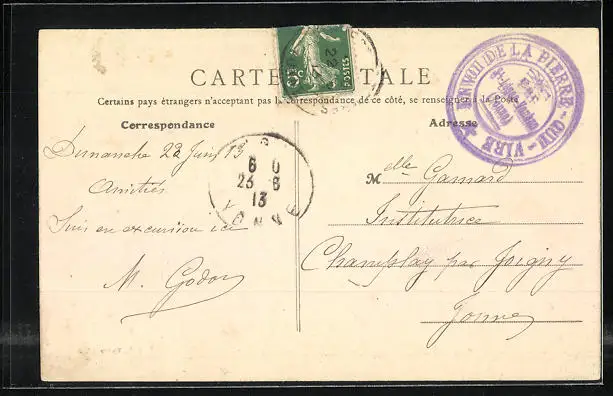 CARTE POSTALE
Certains pays étrangers n'acceptant pas la correspondance de ce côté, se renseigner à la Poste
Correspondance
Adresse
Dimanche 22 Juin 13
Amitiés
Suis en excursion ici
M. Godon
Melle Gamard
Institutrice
Champlay par Joigny
Yonne
ENVOI DE LA PIERRE-QUI-VIRE
5c POSTES
22
6 0
23 - 6
13
YONNE